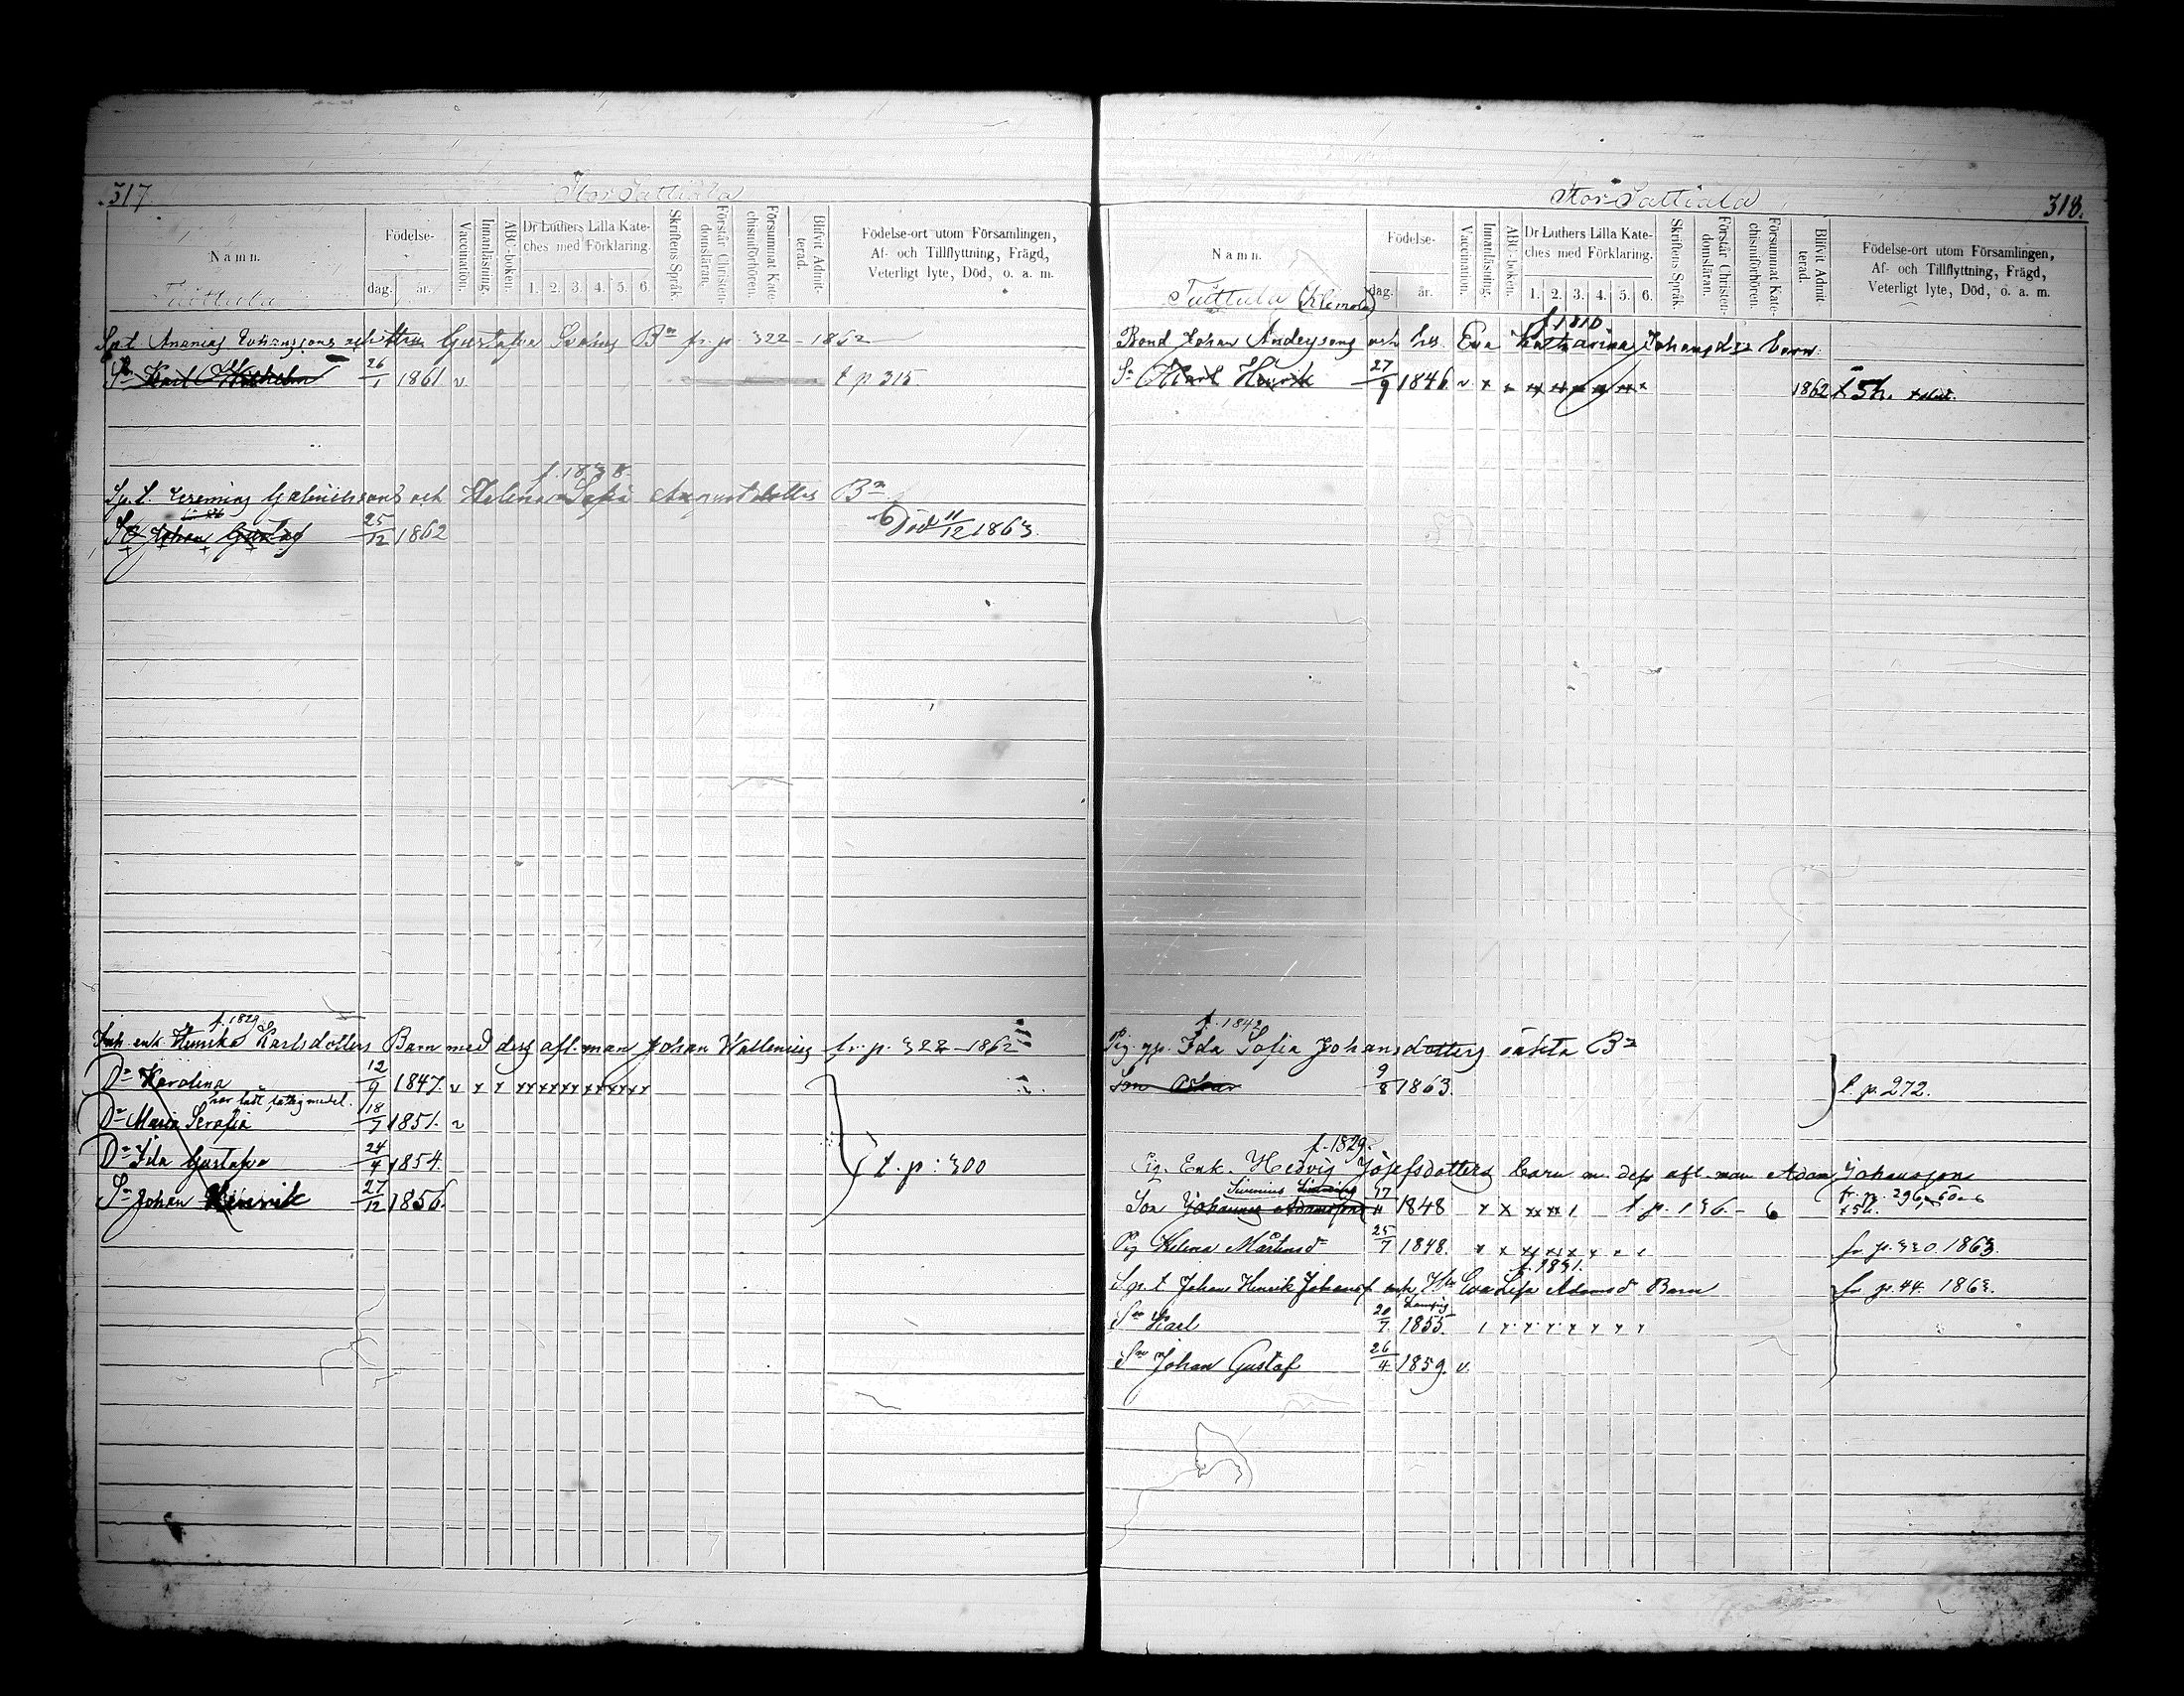 317.
Stor Sattiala
Namn.
Födelse-
dag.
år.
Vaccination.
Innanläsning.
ABC-boken.
Dr Luthers Lilla Kate-
ches med Förklaring.
1. 2. 3. 4. 5. 6.
Skriftens Språk.
Förstår Christen-
domsläran.
Försummat Kate-
chismiförhören.
Blifvit Admit-
terad.
Födelse-ort utom Församlingen,
Af- och Tillflyttning, Frägd,
Veterligt lyte, Död, o. a. m.
Tuittula
Spt. Ananias Johanssons och Gustafva Bn fr. p. 322 - 1862
Sn Karl Wilhelm 26/1 1861 v. t. p. 315
f. 1838.
Sp. t. Jeremias Gabrielssons och Helena Sofia Augustdotters Bn
Sn Johan Gustaf 25/12 1862 Död 11/12 1863.
f. 1829
Inh. enk. Henrika Karlsdotters Barn med dess afl. man Johan Wallenius fr. p. 322 - 1862
Dr Karolina 12/9 1847. v x x xx xx xx xx xx xx
Dr Maria Serafia 18/7 1851. v
Dr Ida Gustafva 24/4 1854.
Sn Johan Henrik 27/12 1856.
t. p. 300
Stor Sattiala
318.
Namn.
Födelse-
dag.
år.
Vaccination.
Innanläsning.
ABC-boken.
Dr Luthers Lilla Kate-
ches med Förklaring.
1. 2. 3. 4. 5. 6.
Skriftens Språk.
Förstår Christen-
domsläran.
Försummat Kate-
chismiförhören.
Blifvit Admit-
terad.
Födelse-ort utom Församlingen,
Af- och Tillflyttning, Frägd,
Veterligt lyte, Död, o. a. m.
Tuittula (Klemola)
f. 1810.
Bond. Johan Anderssons och hu. Eva Katharina Johansdrs barn.
Sn Karl Henrik 27/9 1846. v x x xx xx xx xx xx x 1862
f. 1842
Pig. Ida Sofia Johansdotters oäkta Bn
Son Oskar 9/8 1863. t. p. 272.
f. 1829.
Enk. Hedvig Josefsdotters barn m. dess afl. man Adam Johansson
Son Johannes Adamsson 17/11 1848 x x xx xx 1 t. p. 136. - 6 fr. p. 296
Pig Helena Mårtensdr 25/7 1848. x x xx xx x x x x fr. p. 330. 1863.
f. 1831.
Sp. t. Johan Henrik Johanss. och Hu Eva Lisa Adamsdr Barn fr. p. 44. 1863.
Sn Karl 20/7 1855. 1 x x x x x x x
Sn Johan Gustaf 26/4 1859. v.